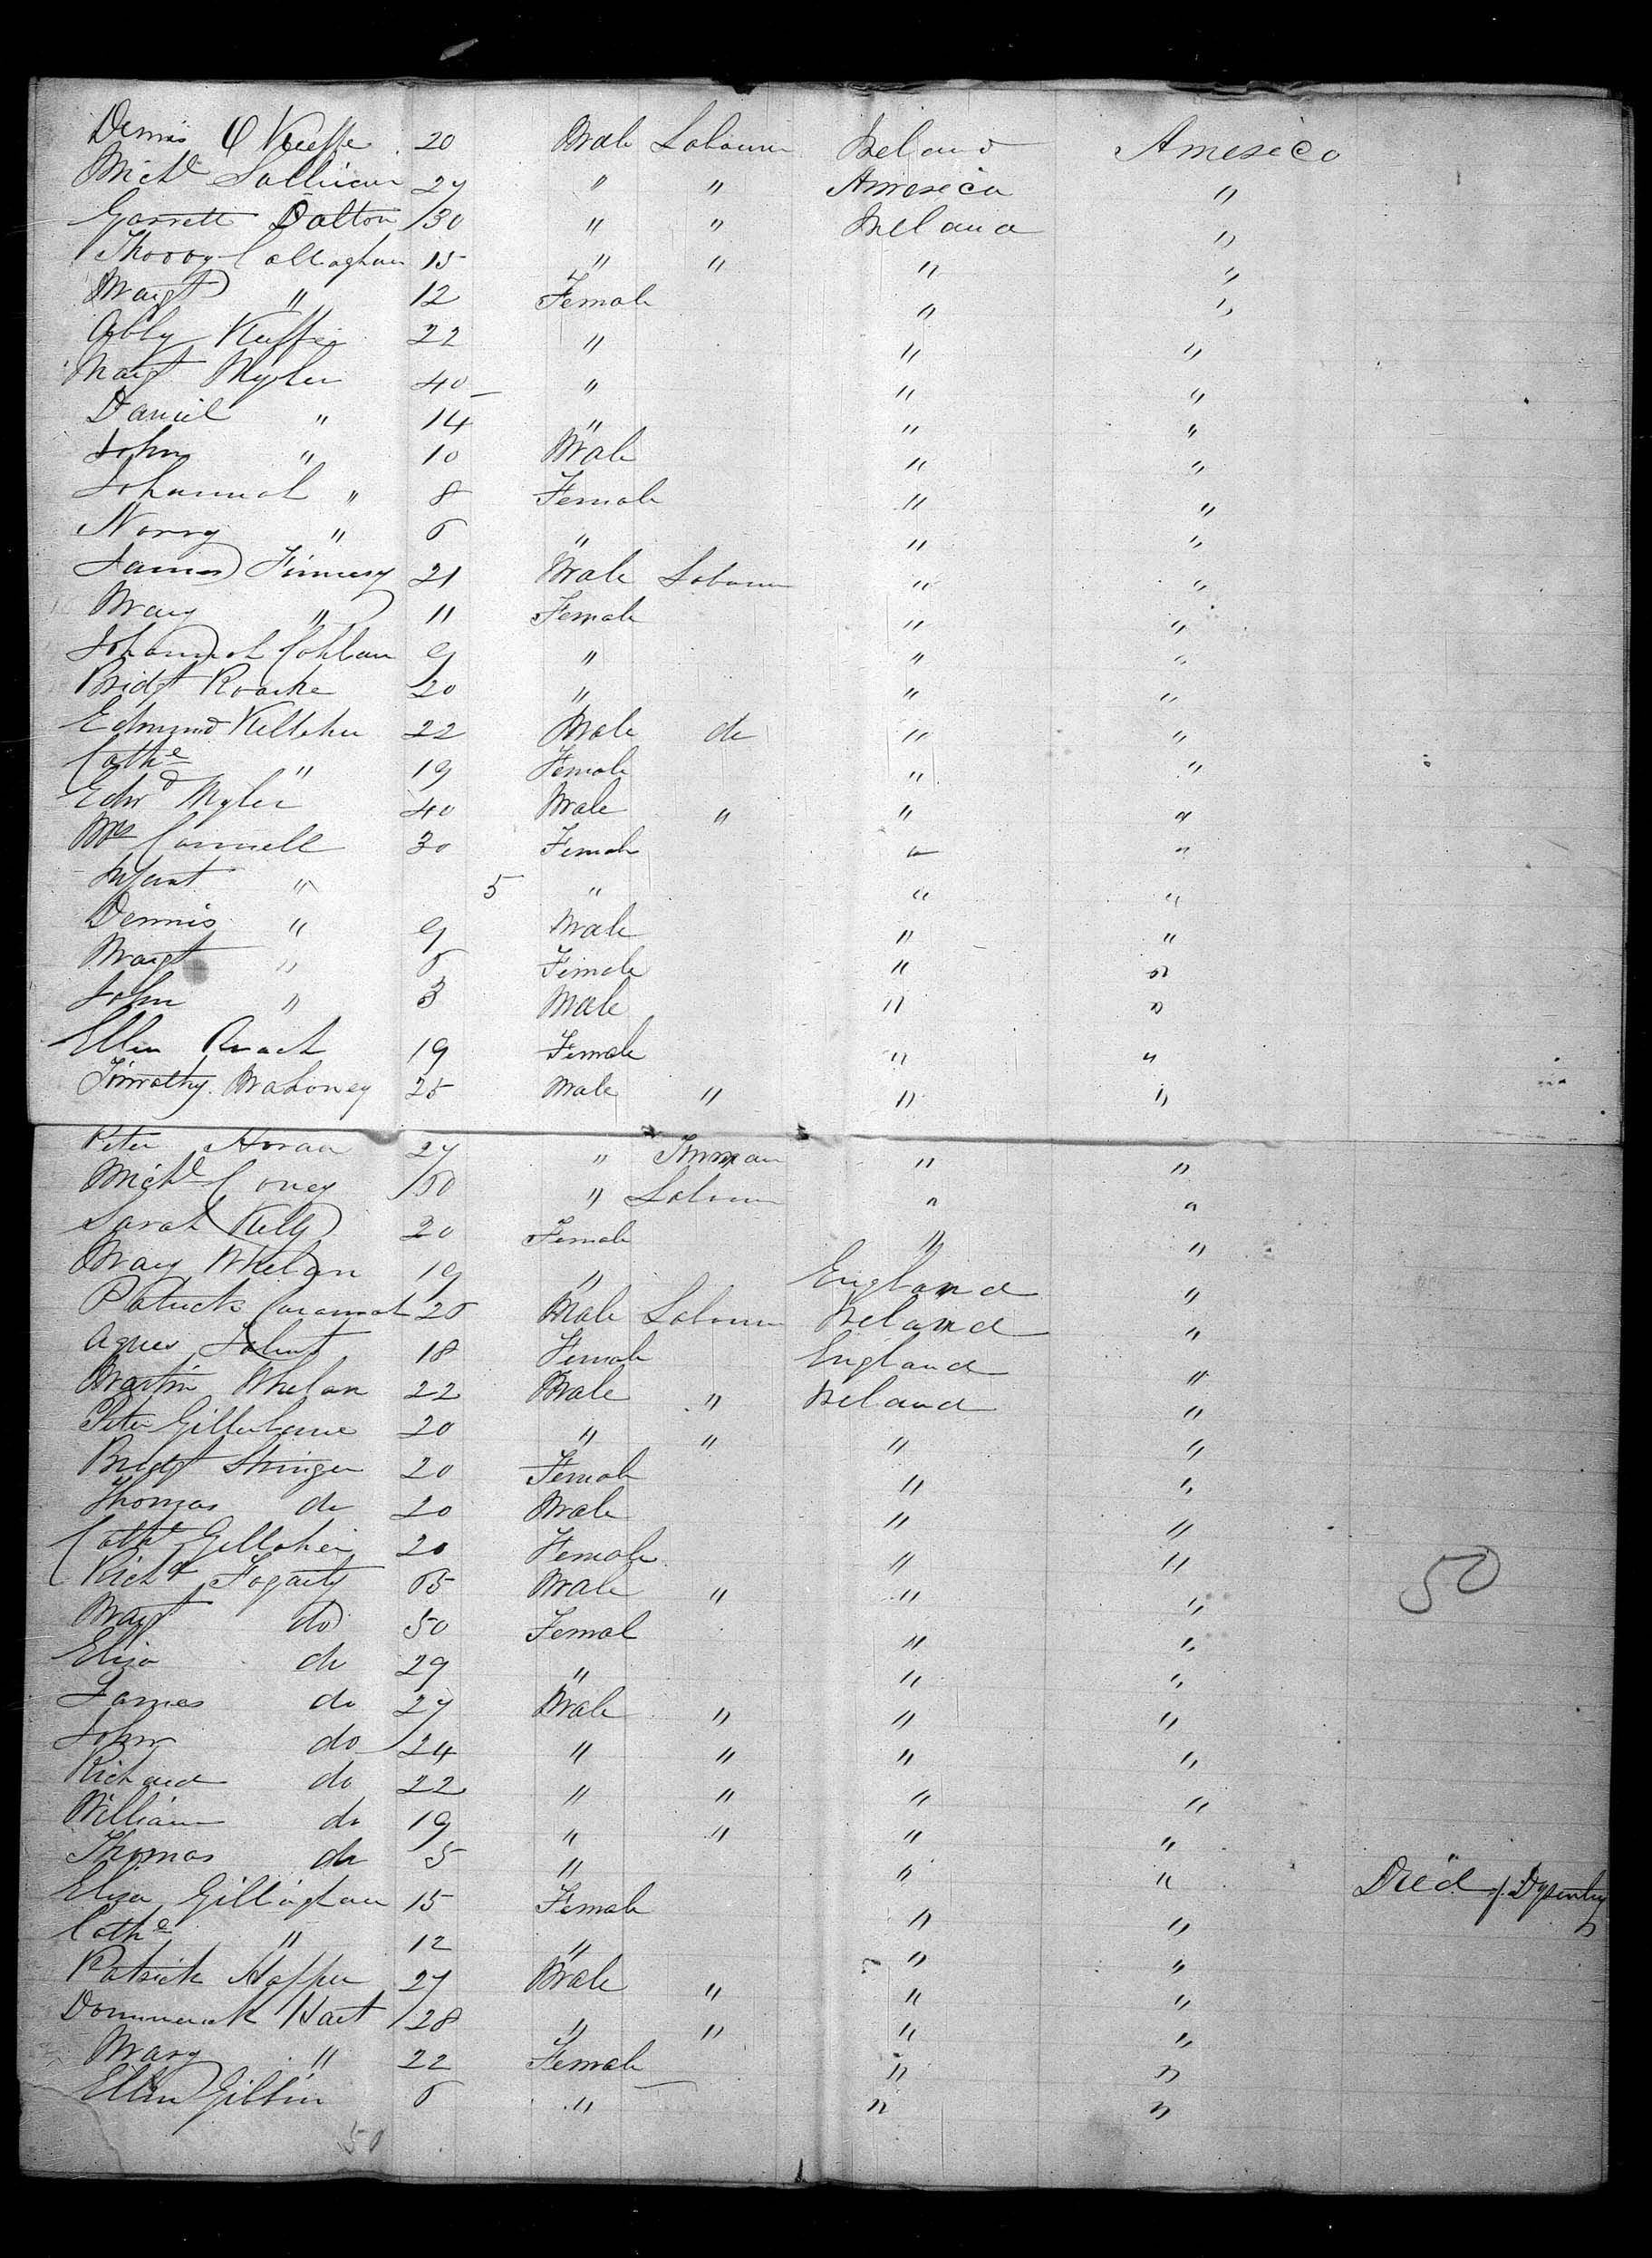 Dennis O Keeffe 20 Male Labourer Ireland America
Michl Sullivan 27 " " America "
Garrett Dalton 30 " " Ireland "
Callaghan 15 " " " "
Margt " 12 Female " "
Abby Keeffe 22 " " "
Margt Myler 40 " " "
Daniel " 14 " " "
John " 10 Male " "
Johannah " 8 Female " "
Norry " 6 " " "
James Finnesy 21 Male Labourer " "
Mary " 11 Female " "
Johannah Cohlan 9 " " "
Bridgt Roache 20 " " "
Edmund Kelleher 22 Male do " "
Cathe " 19 Female " "
Edwd Myler 40 Male " " "
Mrs Connell 30 Female " "
Infant " 5 " " "
Dennis " 9 Male " "
Margt " 6 Female " "
John " 3 Male " "
Ellen Roach 19 Female " "
Timothy Mahoney 25 Male " " "
Peter Horan 27 " " "
Michl Coney 50 " Labourer " "
Sarah Kelly 20 Female " "
Mary Whelan 19 " England "
Patrick 26 Male Labourer Ireland "
Agnes 18 Female England "
Martin Whelan 22 Male " Ireland "
Peter 20 " " " "
Bridgt Stringer 20 Female " "
Thomas do 20 Male " "
Cathe 20 Female " "
Richd Fogarty 65 Male " " "
50
Margt do 50 Femal " "
Eliza do 29 " " "
James do 27 Male " " "
John do 24 " " " "
Richard do 22 " " " "
William do 19 " " " "
Thomas do 5 " " " Died of Dysentry
Eliza Gillaghan 15 Female " "
Cathe " 12 " " "
Patrick 27 Male " " "
Dominick Hart 28 " " " "
Mary " 22 Female " "
Ellen Giblin 6 " " "
50